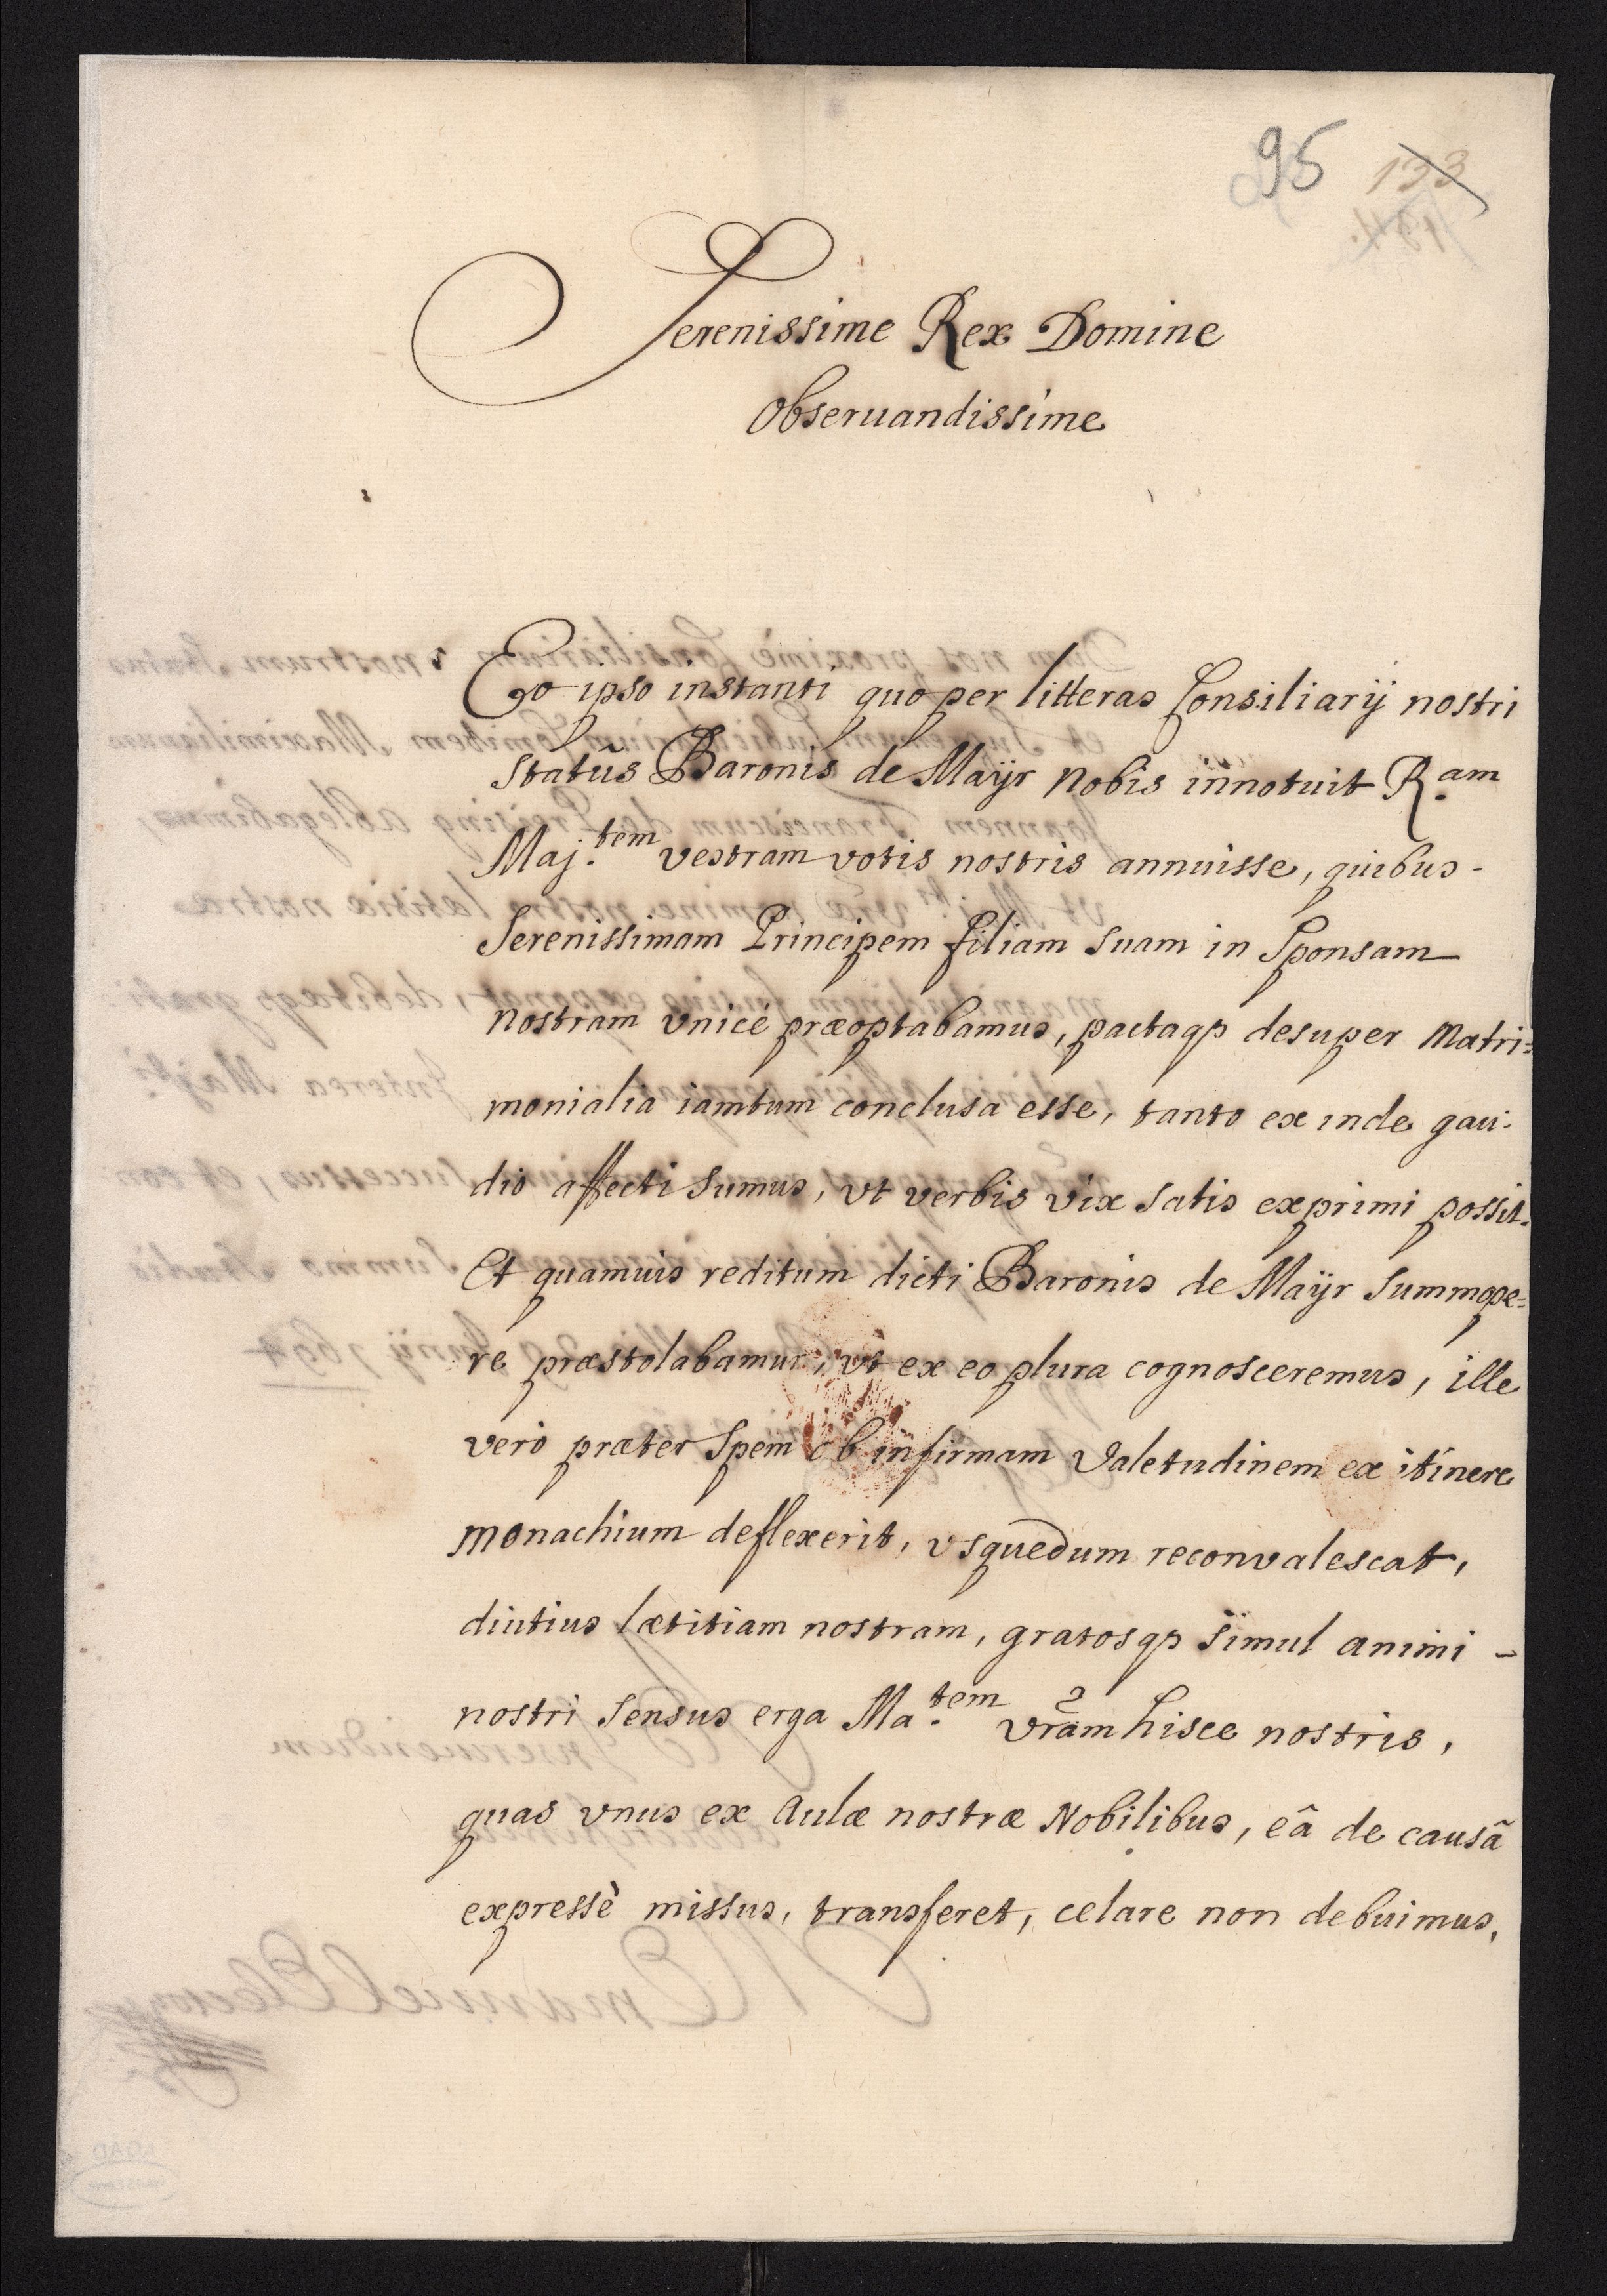 95 133
Serenissime Rex Domine
Obseruandissime
Eo ipso instanti quo per litteras Consiliarij nostri
Statûs Baronis de Maÿr nobis innotuit R.am
Maj.tem vestram votis nostris annuisse, quibus -
Serenissimam Principem filiam suam in Sponsam
nostram vnicè præoptabamus, pactaqȝ desuper Matri=
monialia iamtum conclusa esse, tanto ex inde gau:
dio affecti sumus, vt verbis vix satis exprimi possit.
Et quamuis reditum dicti Baronis de Maÿr summope=
re præstolabamur, vt ex eo plura cognosceremus, ille
verò præter spem ob infirmam Valetudinem ex itinere
Monachium deflexerit, vsquedum reconvalescat,
diutius lætitiam nostram, gratosqȝ simul animi -
nostri sensus erga Ma.tem vr̃am hisce nostris,
quas vnus ex Aulæ nostræ Nobilibus, eâ de causâ
expressè missus, transferet, celare non debuimus,